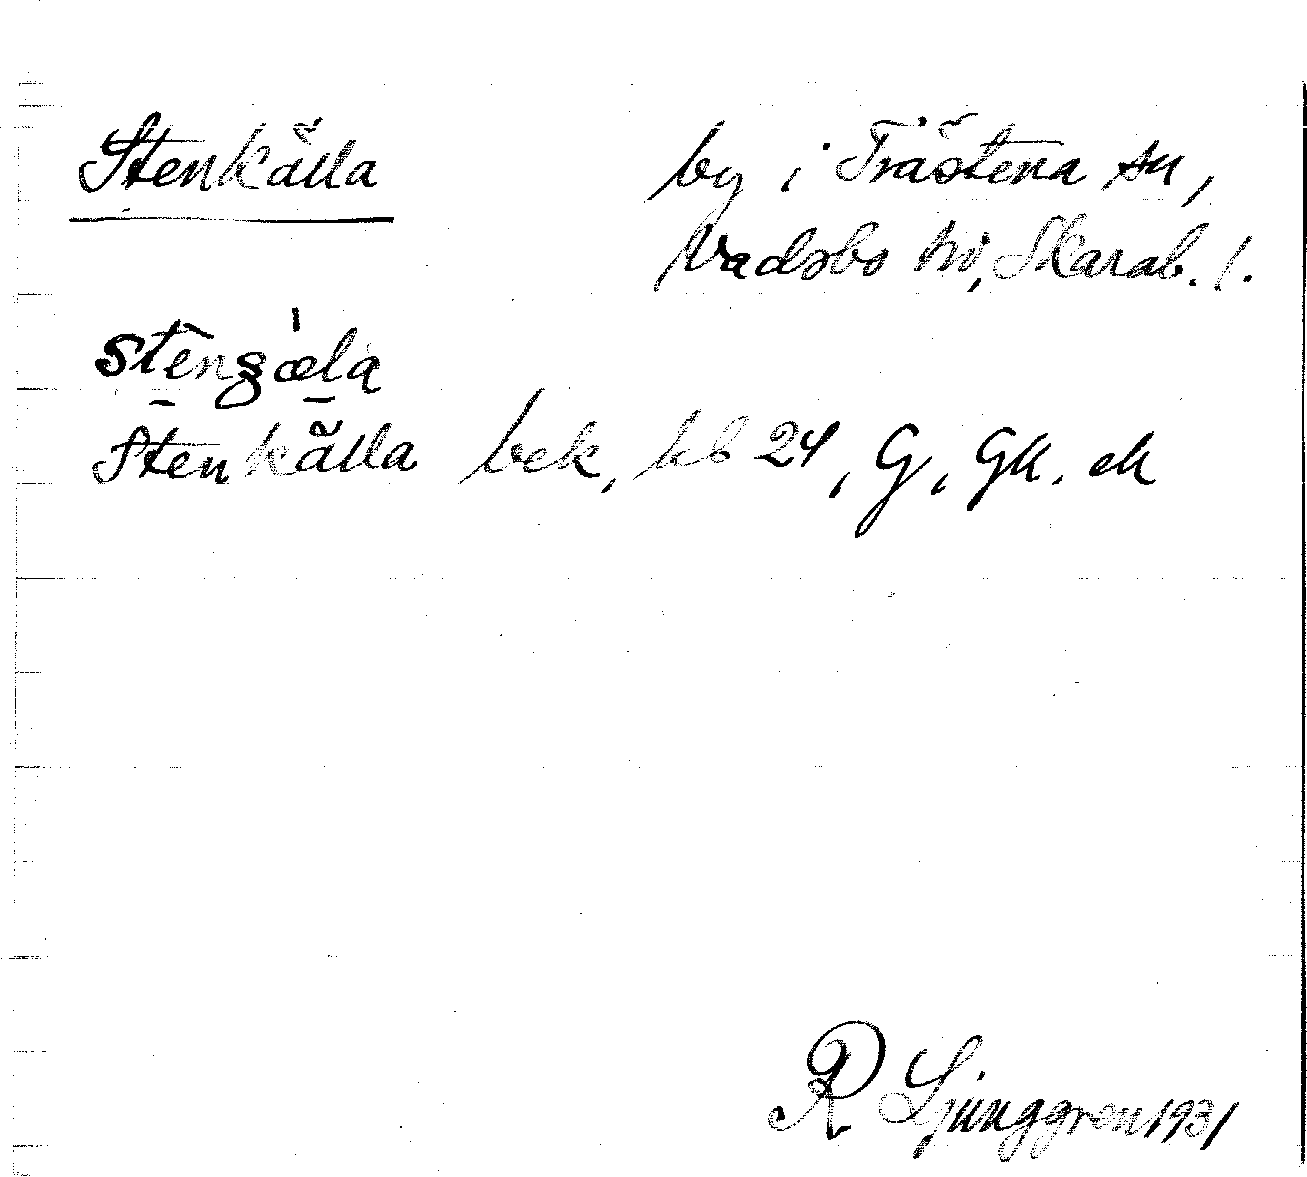 Stenkälla by i Trästena sn,
Vadsbo hd, Skarab. l.
Stenkälla bek, kb 24, G, GK, ek
R Ljunggren 1931